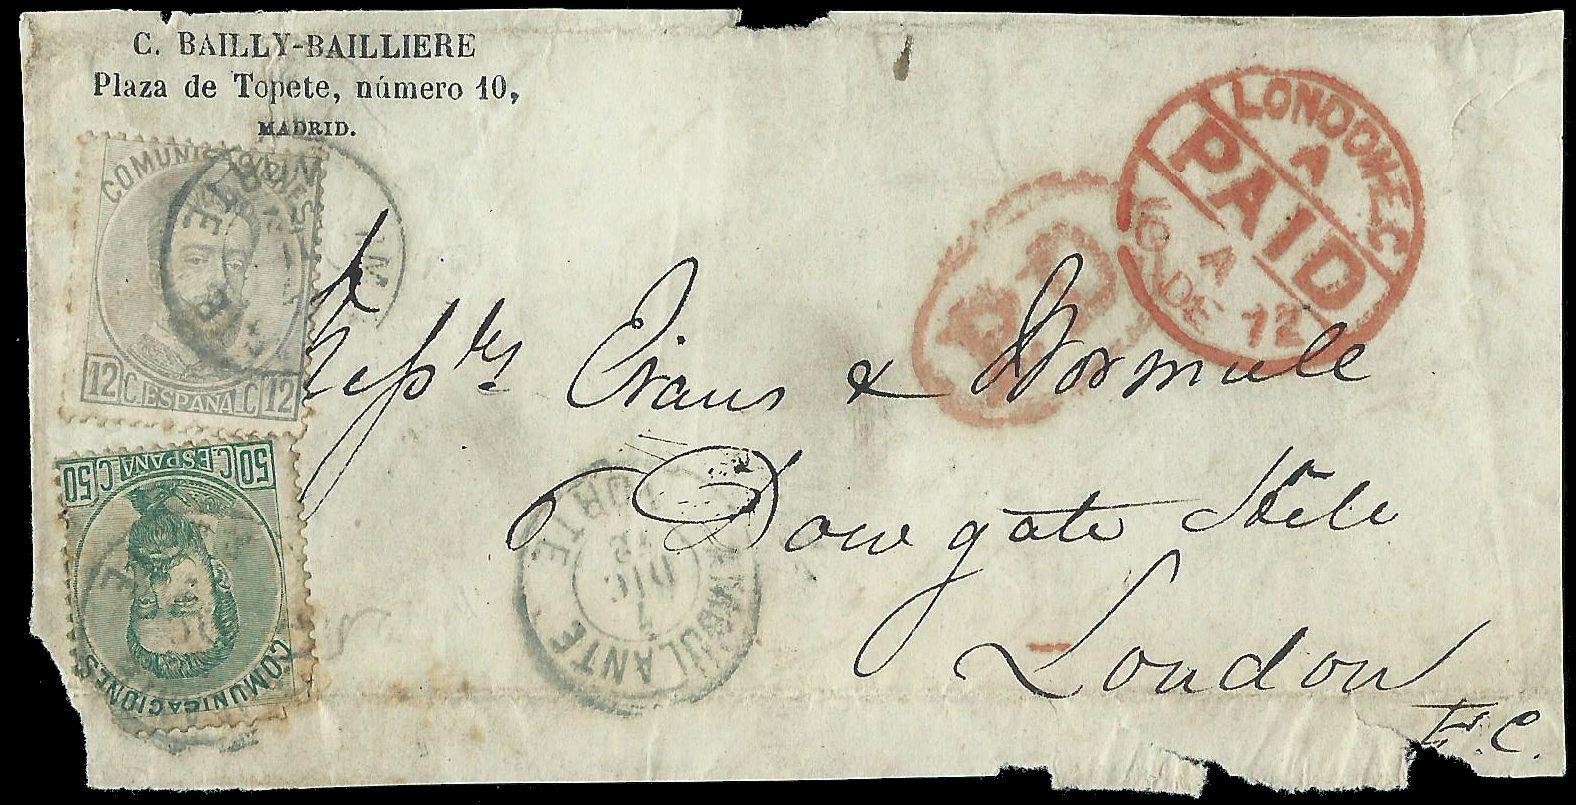 C. BAILLY-BAILLIERE
Plaza de Topete, número 10,
MADRID.
COMUNICACIONES
12 C. ESPAÑA. C 12
50 C ESPAÑA C 50
COMUNICACIONES
LONDON-E.C
A
PAID
A
DE 72
PD
Messrs Evans &
Dowgate
London
E.C.
AMBULANTE
NORTE
DIC